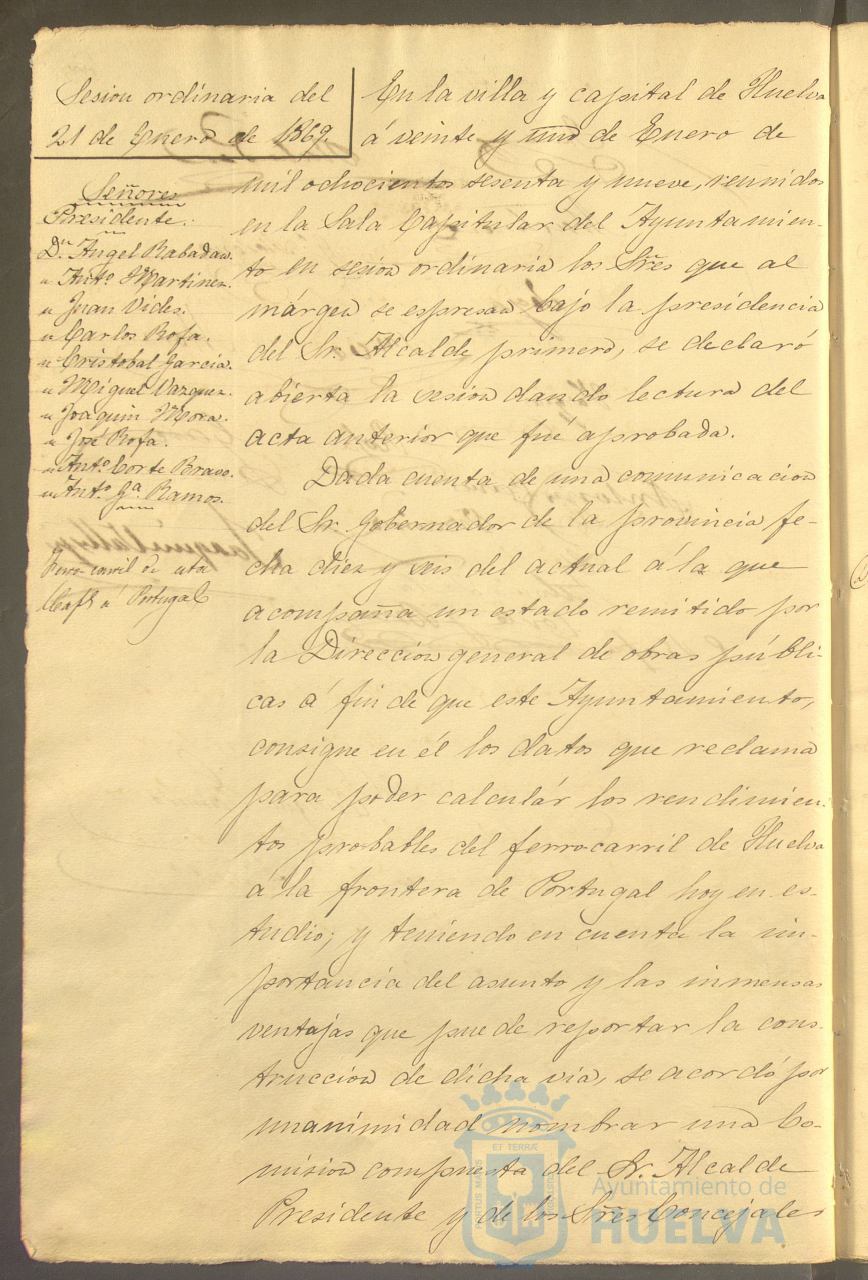 Sesion ordinaria del
21 de Enero de 1869.
Señores
Presidente.
Dn. Angel Rabadan.
" Anto. Martinez.
" Juan Vides.
" Carlos Rofa.
" Cristobal Garcia.
" Miguel Vazquez.
" Joaquin Mora.
" José Rofa.
" Anto. Corte Bravo.
" Anto. Ga. Ramos.
Ferro-carril de esta
Capl. á Portugal
En la villa y capital de Huelva
á veinte y uno de Enero de
mil ochocientos sesenta y nueve, reunidos
en la Sala Capitular del Ayuntamien-
to en sesion ordinaria los Sres que al
márgen se espresan bajo la presidencia
del Sr. Alcalde primero, se declaró
abierta la sesion dando lectura del
acta anterior que fué aprobada.
Dada cuenta de una comunicacion
del Sr. Gobernador de la provincia fe-
cha diez y seis del actual á la que
acompaña un estado remitido por
la Direccion general de obras públi-
cas á fin de que este Ayuntamiento,
consigne en él los datos que reclama
para poder calculár los rendimien-
tos probables del ferro-carril de Huelva
á la frontera de Portugal hoy en es-
tudio; y teniendo en cuenta la im-
portancia del asunto y las inmensas
ventajas que puede reportar la cons-
truccion de dicha via, se acordó por
unanimidad nombrar una Co-
mision compuesta del Sr. Alcalde
Presidente y de los Sres Concejales
PORTUS MARIS
ET TERRÆ
CUSTODIA
Ayuntamiento de
HUELVA